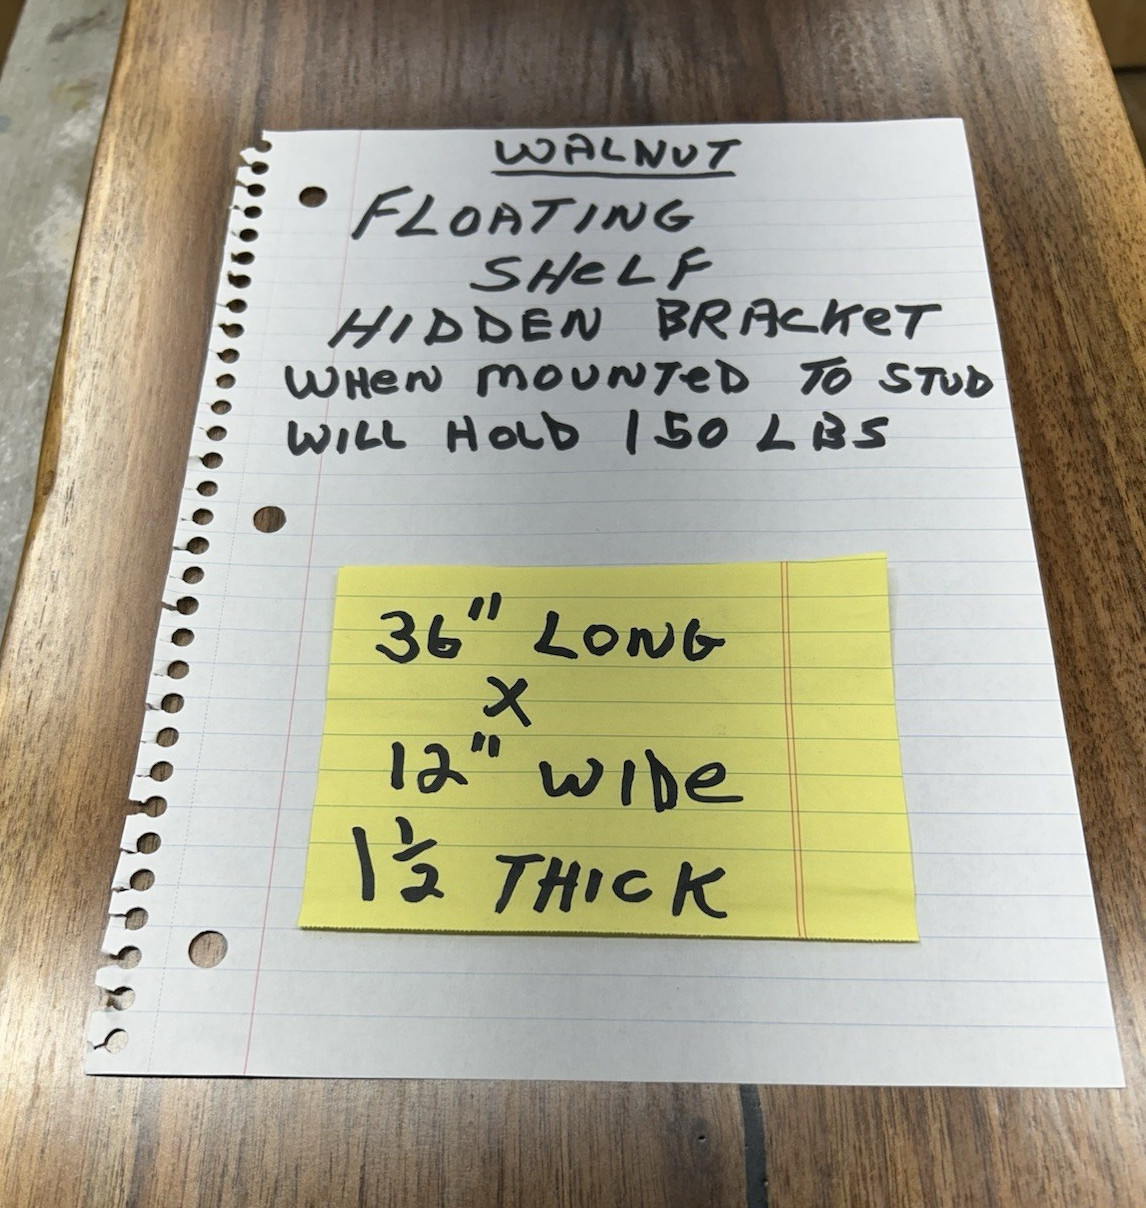 WALNUT
FLOATING
SHeLF
HIDDEN BRACKeT
WHeN MOUNTeD TO STUD
WILL HOLD 150 LBS
36" LONG
X
12" WIDe
1 1/2 THICK